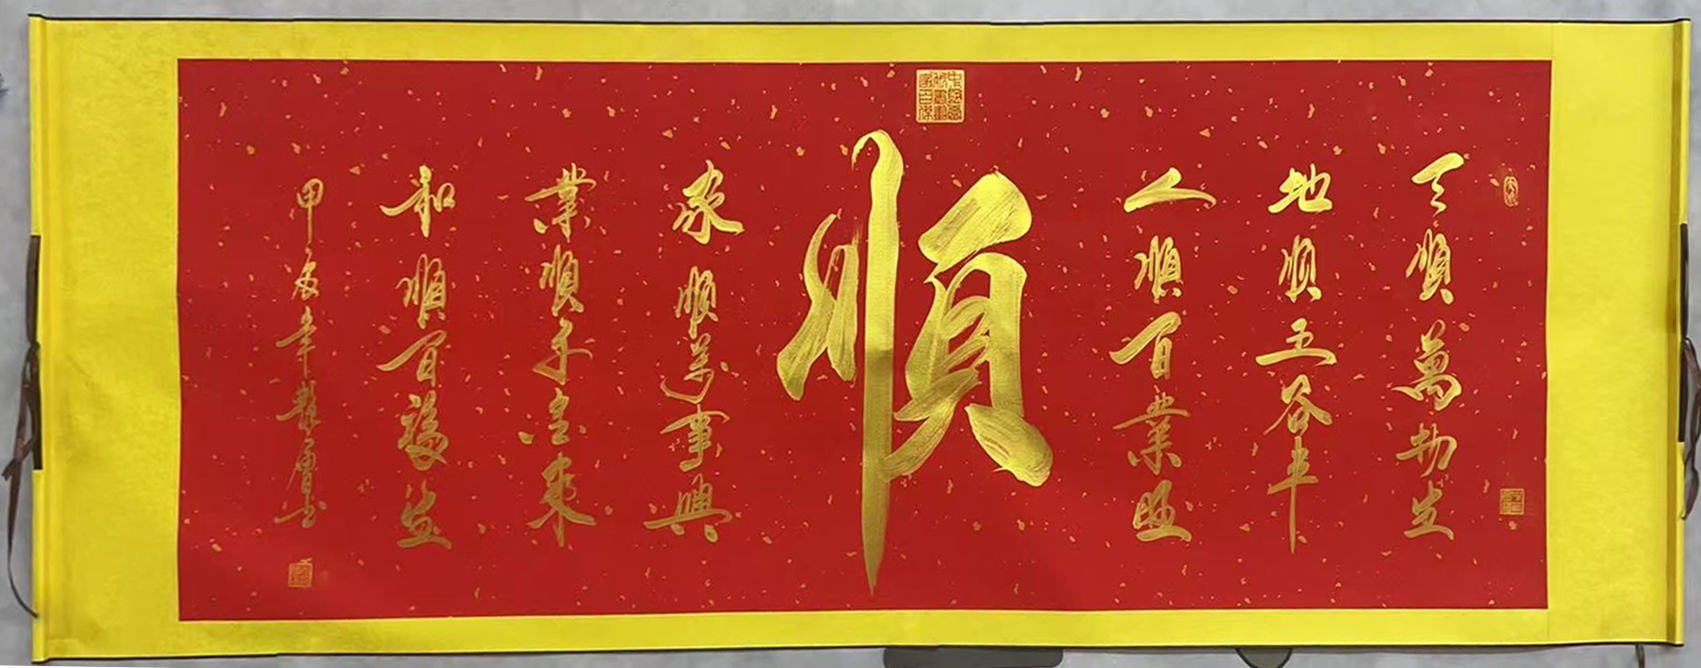 天順萬物生
地順五谷丰
人順百業旺
順
家順萬事興
業順千喜來
和順百福
甲辰年